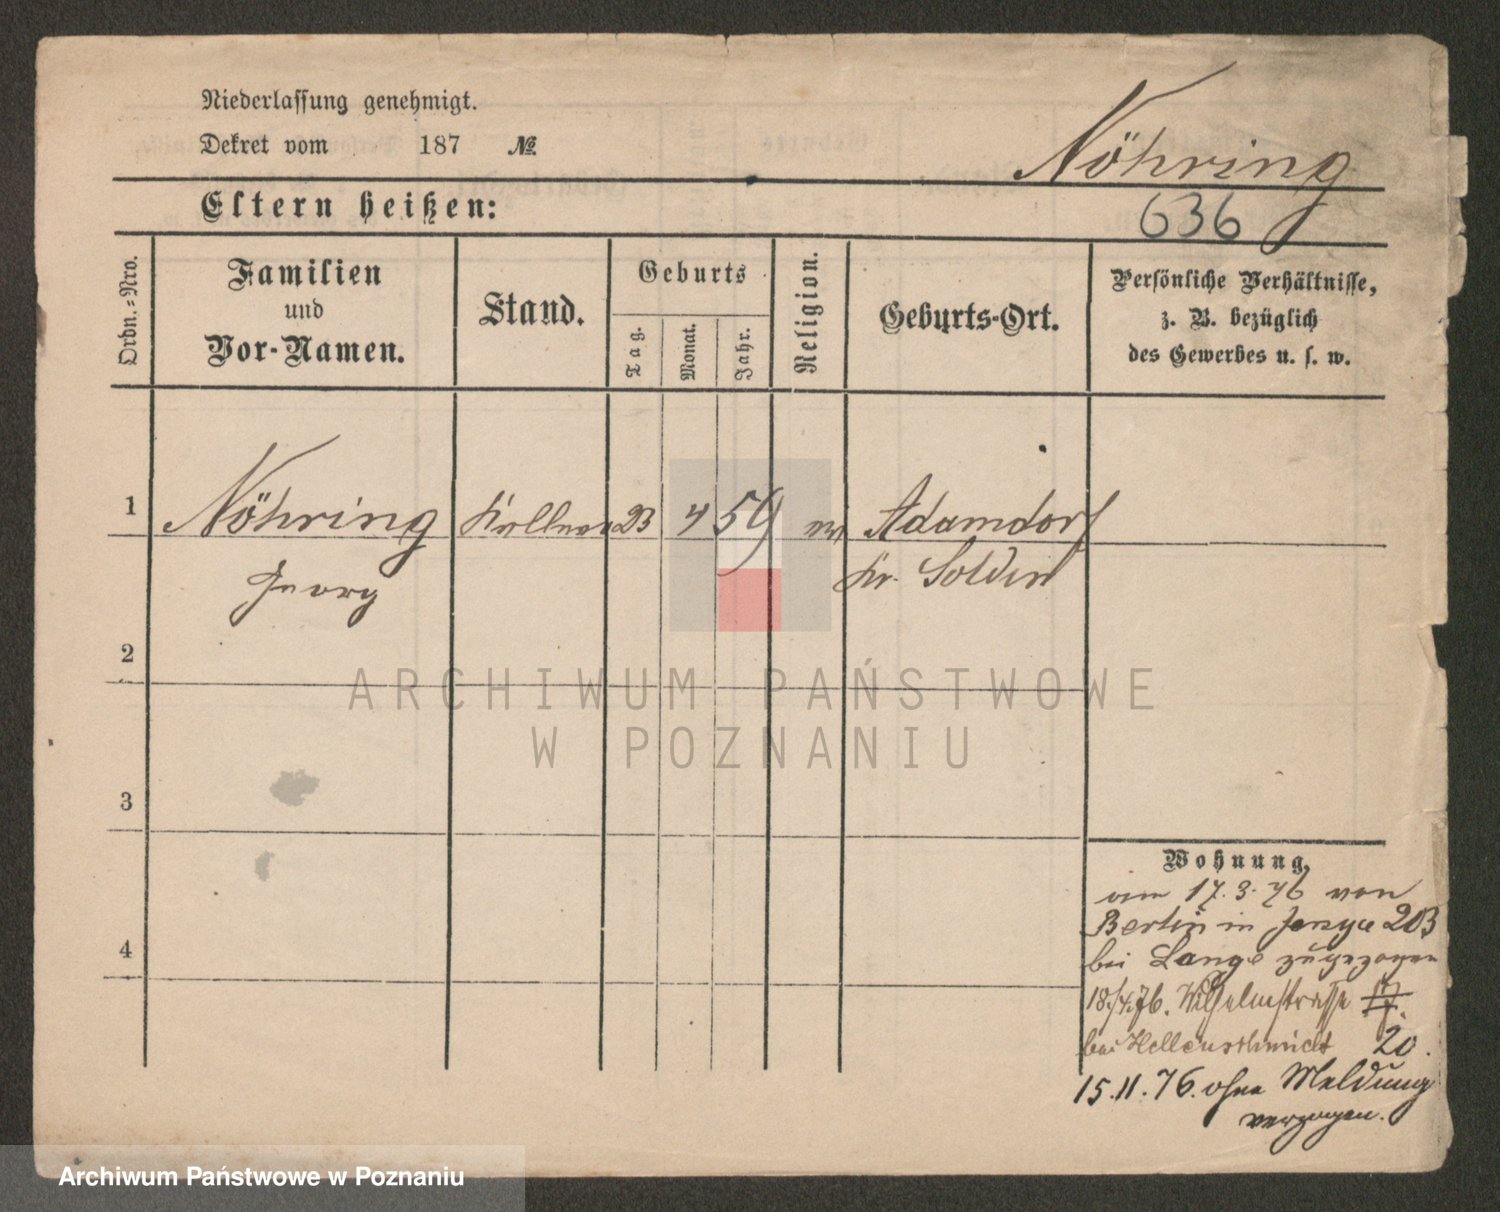 Niederlassung genehmigt.
Dekret vom 187 №
Nöhring
Eltern heißen:
636
Ordn.-Nro.
Familien
und
Vor-Namen.
Stand.
Geburts
Tag.
Monat.
Jahr.
Religion.
Geburts-Ort.
Persönliche Verhältnisse,
z. B. bezüglich
des Gewerbes u. s. w.
1 Nöhring Kellner 23 4 59 Adamdorf
Georg Kr. Soldin
2
ARCHIWUM PAŃSTWOWE
W POZNANIU
3
4
Wohnung.
am 17.3.76 von
Berlin in 203
bei Lange zugezogen
18./4.76. Wilhelmstrasse 17.
bei Hellenschmidt 20.
15.11.76. ohne Meldung
verzogen.
Archiwum Państwowe w Poznaniu